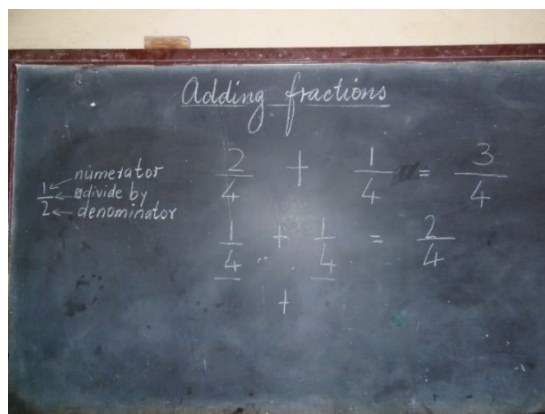 Adding fractions
1 numerator
divide by
2 denominator
2/4 + 1/4 = 3/4
1/4 + 1/4 = 2/4
+